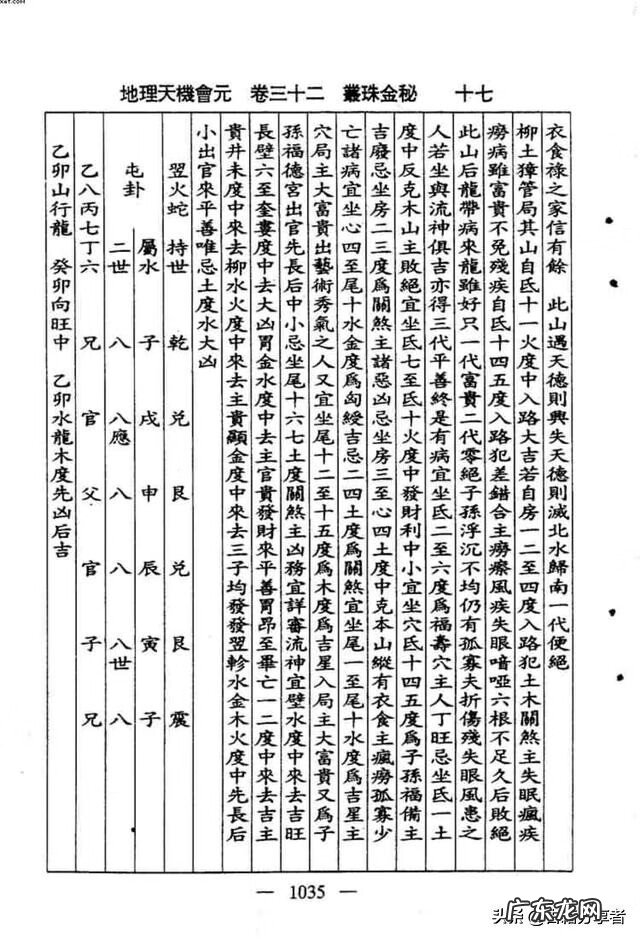 xet.com
地理天機會元 卷三十二 叢珠金秘 十七
衣食祿之家信有餘 此山遇天德則興失天德則滅北水歸南一代便絕
柳土獐管局其山自氐十一火度中入路大吉若自房一二至四度入路犯土木關煞主失眠瘋疾
癆病雖富貴不免殘疾自氐十四五度入路犯差錯合主癆瘵風疾失眼喑啞六根不足久后敗絕
此山后龍帶病來龍雖好只一代富貴二代零絕子孫浮沉不均仍有孤寡夭折傷殘失眼風患之
人若坐與流神俱吉亦得三代平善終是有病宜坐氐二至六度爲福壽穴主人丁旺忌坐氐一土
度中反克木山主敗絕宜坐氐七至氐十火度中發財利中小宜坐穴氐十四五度爲子孫福備主
吉廢忌坐房二三度爲關煞主諸惡凶忌坐房三至心四土度中克本山縱有衣食主瘋癆孤寡少
亡諸病宜坐心四至尾十水金度爲匈綬吉忌二四土度爲關煞宜坐尾一至尾十水度爲吉星主
穴局主大富貴出藝術秀氣之人又宜坐尾十二至十五度爲木度爲吉星入局主大富貴又爲子
孫福德宮出官先長后中小忌坐尾十六七土度關煞主凶務宜詳審流神宜壁水度中來去吉旺
長壁六至奎婁度中去大凶胃金水度中去主官貴發財來平善胃昂至畢亡一二度中來去吉主
貴井未度中來去柳水火度中來去主貴顯金度中來去三子均發發翌軫水金木火度中先長后
小出官來平善唯忌土度水大凶
翌火蛇 持世 乾 兑 艮 兑 艮 震
屯卦 屬水 子 戌 申 辰 寅 子
二世 八 八應 八 八 八世 八
乙八丙七丁六 兄 官 父 官 子 兄
乙卯山行龍 癸卯向旺中 乙卯水龍木度先凶后吉
— 1035 —
广东龙网